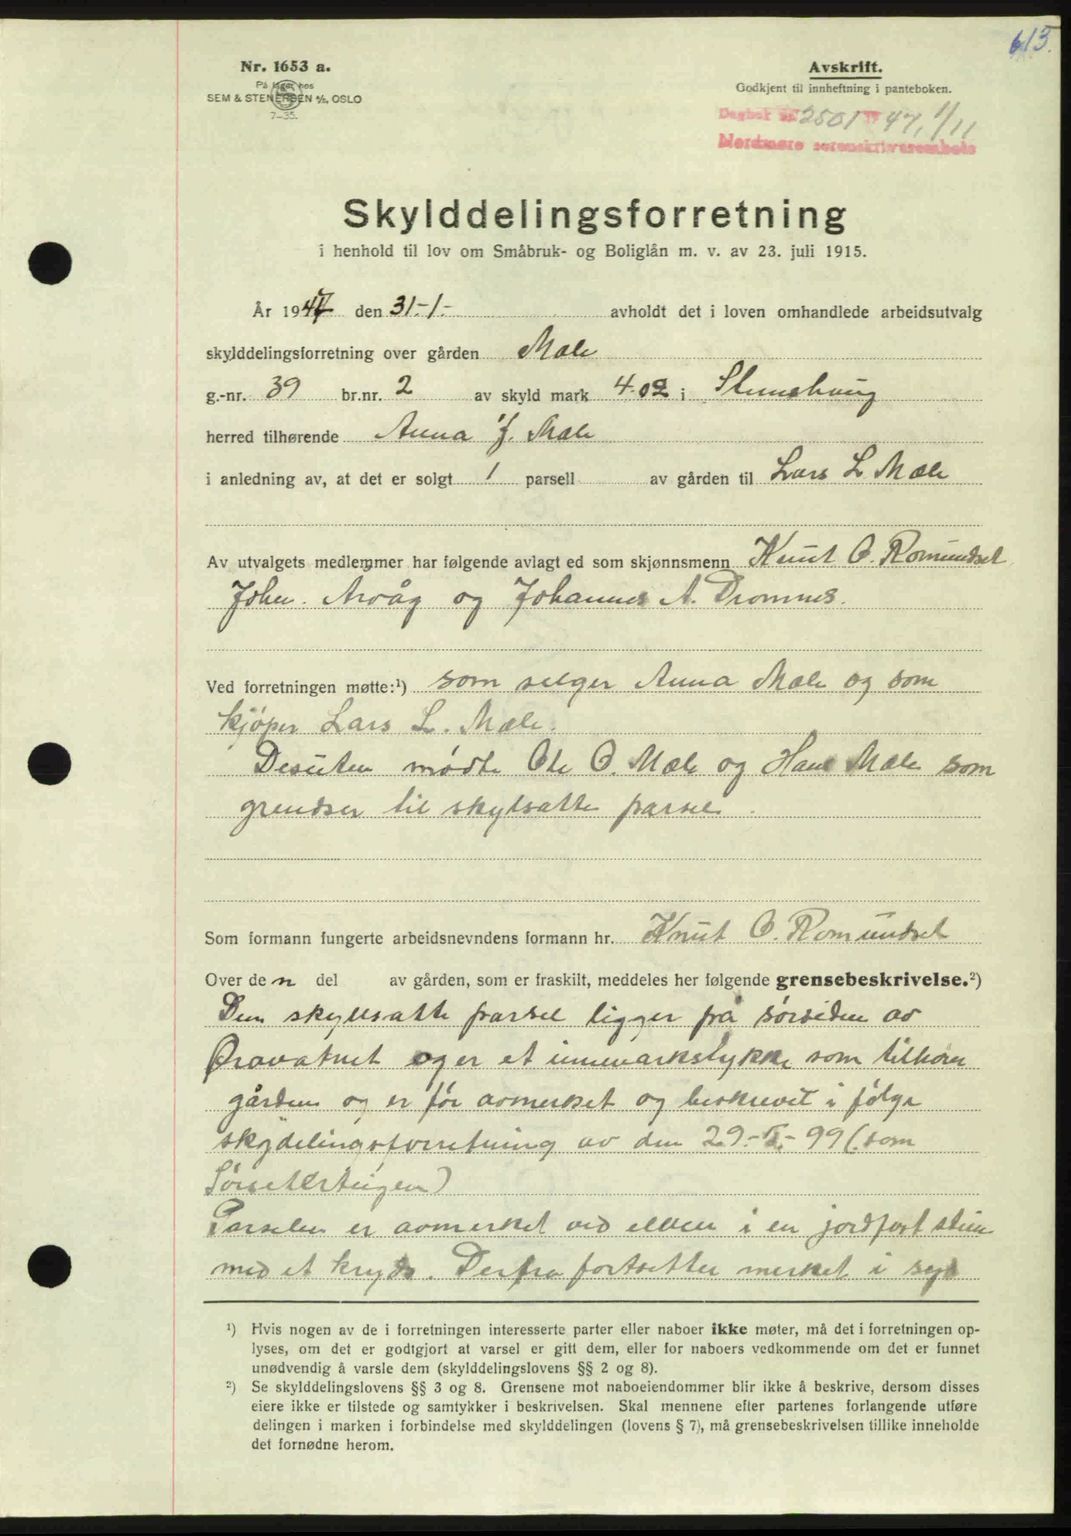 613.
Nr. 1653 a.
På lager hos
SEM & STENERSEN A/S, OSLO
7-35.
Avskrift.
Godkjent til innheftning i panteboken.
Dagbok nr. 2501 19 47, 1/11
Nordmøre sorenskriverembete
Skylddelingsforretning
i henhold til lov om Småbruk- og Boliglån m. v. av 23. juli 1915.
År 1947 den 31.-1.- avholdt det i loven omhandlede arbeidsutvalg
skylddelingsforretning over gården Mæle
g.-nr. 39 br.nr. 2 av skyld mark 4.02 i Stemshaug
herred tilhørende Anna J. Mæle
i anledning av, at det er solgt 1 parsell av gården til Lars L. Mæle
Av utvalgets medlemmer har følgende avlagt ed som skjønnsmenn Knut O. Romundset
John. Arvåg og Johannes A. Dromnes.
Ved forretningen møtte:¹) som selger Anna Mæle og som
kjøper Lars L. Mæle.
Desuten mødte Ole O. Mæle og Hans Mæle som
grendser til skylsatte parsel.
Som formann fungerte arbeidsnevndens formann hr. Knut O. Romundset
Over den del av gården, som er fraskilt, meddeles her følgende grensebeskrivelse.²)
Den skyllsatte parsel ligger på sørsiden av
Øravatnet og er et innmarkstykke som tilhører
gården og er før avmerket og beskrevet i følge
skyldelingsforretning av den 29.- -99 (som
Sørsetersteigen)
Parselen er avmerket ved elven i en jordfast stein
med et kryds. Derfra fortsetter merket i syd
¹) Hvis nogen av de i forretningen interesserte parter eller naboer ikke møter, må det i forretningen op-
lyses, om det er godtgjort at varsel er gitt dem, eller for naboers vedkommende om det er funnet
unødvendig å varsle dem (skylddelingslovens §§ 2 og 8).
²) Se skylddelingslovens §§ 3 og 8. Grensene mot naboeiendommer blir ikke å beskrive, dersom disses
eiere ikke er tilstede og samtykker i beskrivelsen. Skal mennene efter partenes forlangende utføre
delingen i marken i forbindelse med skylddelingen (lovens § 7), må grensebeskrivelsen tillike inneholde
det fornødne herom.